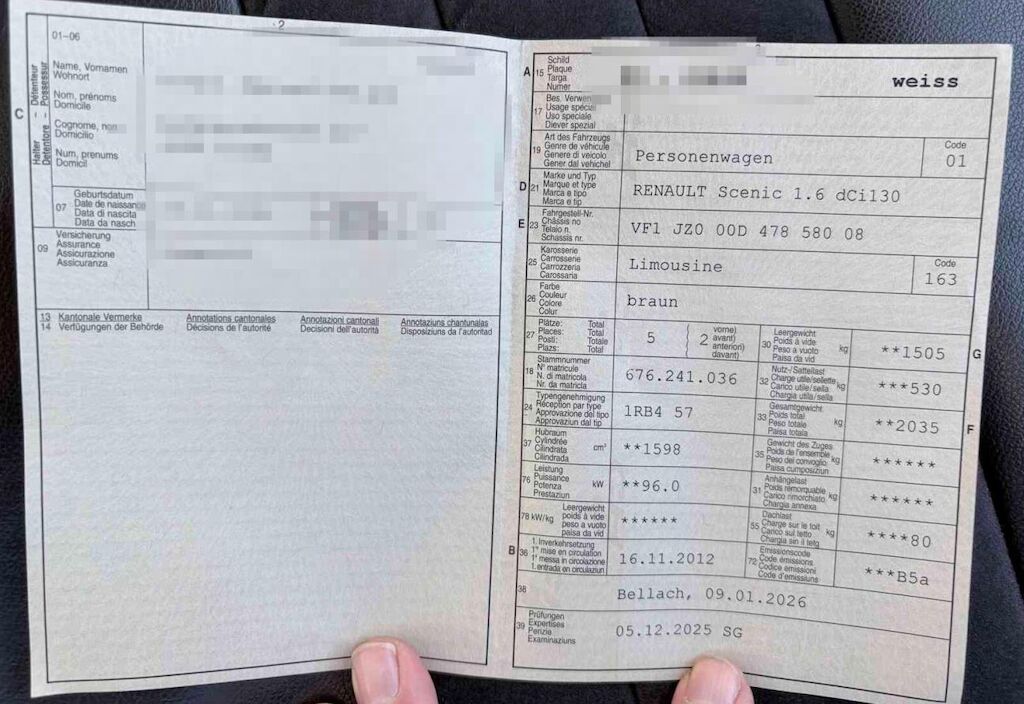 2
01-06
C
Halter - Détenteur
Detentore - Possessur
Name, Vornamen
Wohnort
Nom, prénoms
Domicile
Cognome, nomi
Domicilio
Num, prenums
Domicil
07
Geburtsdatum
Date de naissance
Data di nascita
Data da nasch
09
Versicherung
Assurance
Assicurazione
Assicuranza
13 Kantonale Vermerke Annotations cantonales Annotazioni cantonali Annotaziuns chantunalas
14 Verfügungen der Behörde Décisions de l'autorité Decisioni dell'autorità Disposiziuns da l'autoritad
A 15 Schild
Plaque
Targa
Numer
weiss
17 Bes.
Usage spécial
Uso speciale
Diever spezial
19 Art des Fahrzeugs
Genre de véhicule
Genere di veicolo
Gener dal vehichel
Personenwagen
Code
01
D 21 Marke und Typ
Marque et type
Marca e tipo
Marca e tip
RENAULT Scenic 1.6 dCi130
E 23 Fahrgestell-Nr.
Châssis no
Telaio n.
Schassis nr.
VF1 JZ0 00D 478 580 08
25 Karosserie
Carrosserie
Carrozzeria
Carossaria
Limousine
Code
163
26 Farbe
Couleur
Colore
Colur
braun
27 Plätze: Total
Places: Total
Posti: Totale
Plazs: Total
5
2
vorne)
avant)
anteriori)
davant)
30 Leergewicht
Poids à vide
Peso a vuoto
Paisa da vid
kg
**1505
G
18 Stammnummer
N° matricule
N. di matricola
Nr. da matricla
676.241.036
32 Nutz-/Sattellast
Charge utile/sellette
Carico utile/sella
Chargia utila/sella
kg
***530
24 Typengenehmigung
Réception par type
Approvazione del tipo
Approvaziun dal tip
1RB4 57
33 Gesamtgewicht
Poids total
Peso totale
Paisa totala
kg
**2035
F
37 Hubraum
Cylindrée
Cilindrata
Cilindrada
cm³
**1598
35 Gewicht des Zuges
Poids de l'ensemble
Peso del convoglio
Paisa cumposiziun
kg
******
76 Leistung
Puissance
Potenza
Prestaziun
kW
**96.0
31 Anhängelast
Poids remorquable
Carico rimorchiato
Chargia annexa
kg
******
78 kW/kg
Leergewicht
poids à vide
peso a vuoto
paisa da vid
******
55 Dachlast
Charge sur le toit
Carico sul tetto
Chargia sin il tetg
kg
****80
B 36 1. Inverkehrsetzung
1re mise en circulation
1a messa in circolazione
1. entrada en circulaziun
16.11.2012
72 Emissionscode
Code émissions
Codice emissioni
Code d'emissiuns
***B5a
38
Bellach, 09.01.2026
39 Prüfungen
Expertises
Perizie
Examinaziuns
05.12.2025 SG